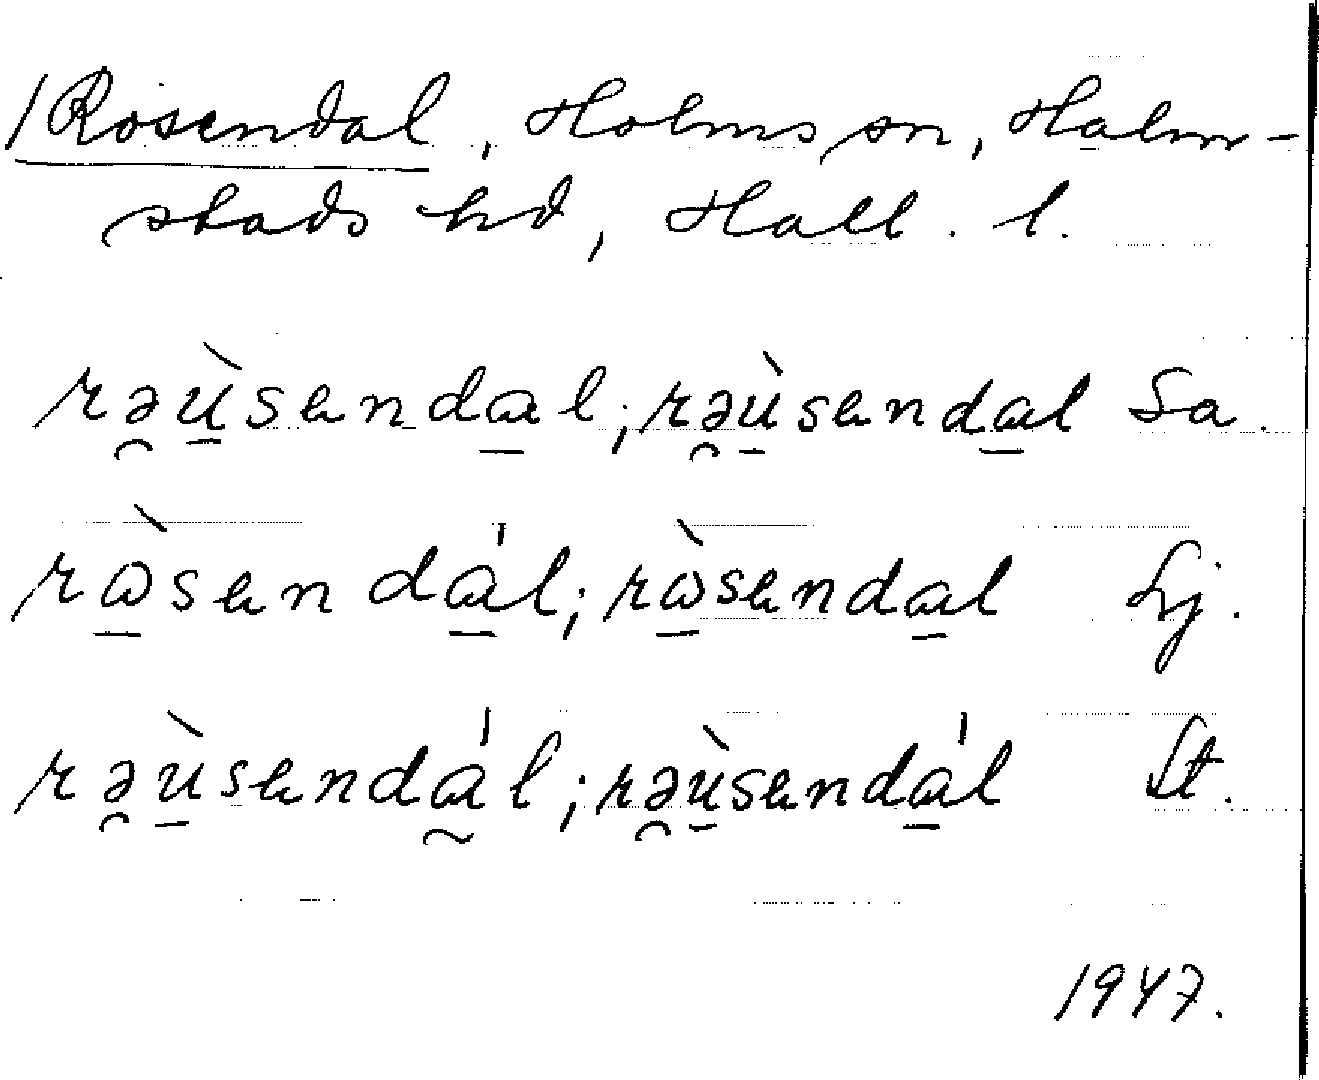 /Rosendal, Holms sn, Halm-
stads hd, Hall. l.
rəùsendɑl; rəùsendɑl Sa.
rɷ̀sen dɑ́l; rɷ̀sendɑl Lj.
rəùsendɑ́l; rəùsendɑ́l St.
1947.